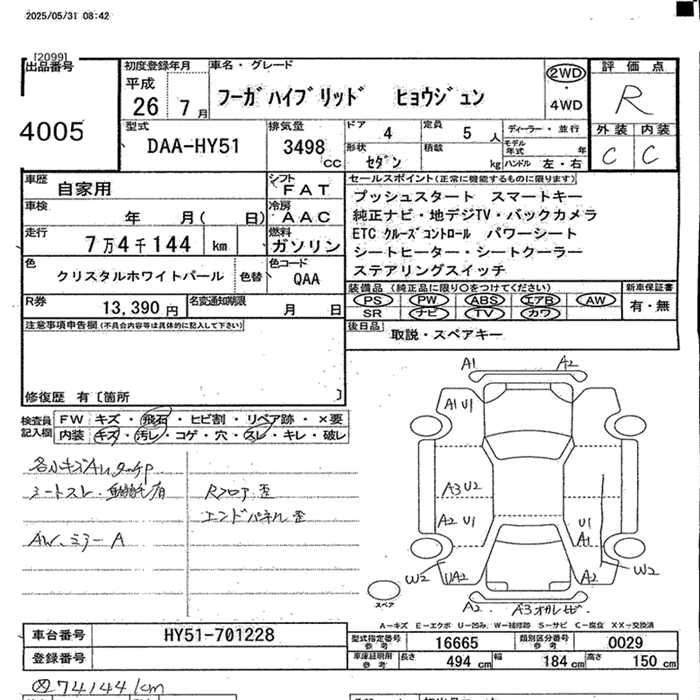 2025/05/31 08:42
[2099]
出品番号
4005
初度登録年月
平成
26 7月
車名・グレード
フーガハイブリッド ヒョウジュン
2WD
・
4WD
評価点
R
外装 内装
C C
型式
DAA-HY51
排気量
3498 cc
ドア 4
形状 セダン
定員 5人
積載 kg
ディーラー・並行
モデル年式 年
ハンドル 左・右
車歴
自家用
シフト
FAT
車検
年 月( 日)
冷房
AAC
走行
7万4千144 km
燃料
ガソリン
色
クリスタルホワイトパール
色替
色コード
QAA
R券
13,390円
名変通知期限
月 日
セールスポイント(正常に機能するものに限ります)
プッシュスタート スマートキー
純正ナビ・地デジTV・バックカメラ
ETC クルーズコントロール パワーシート
シートヒーター・シートクーラー
ステアリングスイッチ
装備品 (純正品に限り○をつけてください)
PS PW ABS エアB AW
SR ナビ TV カワ
新車保証書
有・無
後日品
取説・スペアキー
注意事項申告欄(不具合内容等は具体的に記入して下さい)
修復歴 有〔箇所 〕
検査員記入欄
FW キズ・飛石・ヒビ割・リペア跡・×要
内装 キズ・汚レ・コゲ・穴・スレ・キレ・破レ
シートスレ・
Rフロア歪
エンドパネル歪
AW、ミラーA
A1 A2
A1 U1
A3 U2
A2 U1
U1
A1
W2 UA2 A2 W2
A2 A3
スペア
A−キズ E−エクボ U−凹み W−補修跡 S−サビ C−腐食 XX−交換済
車台番号 HY51-701228
登録番号
型式指定番号 参考 16665
類別区分番号 参考 0029
車庫証明用 参考 長さ 494 cm 幅 184 cm 高さ 150 cm
74144km